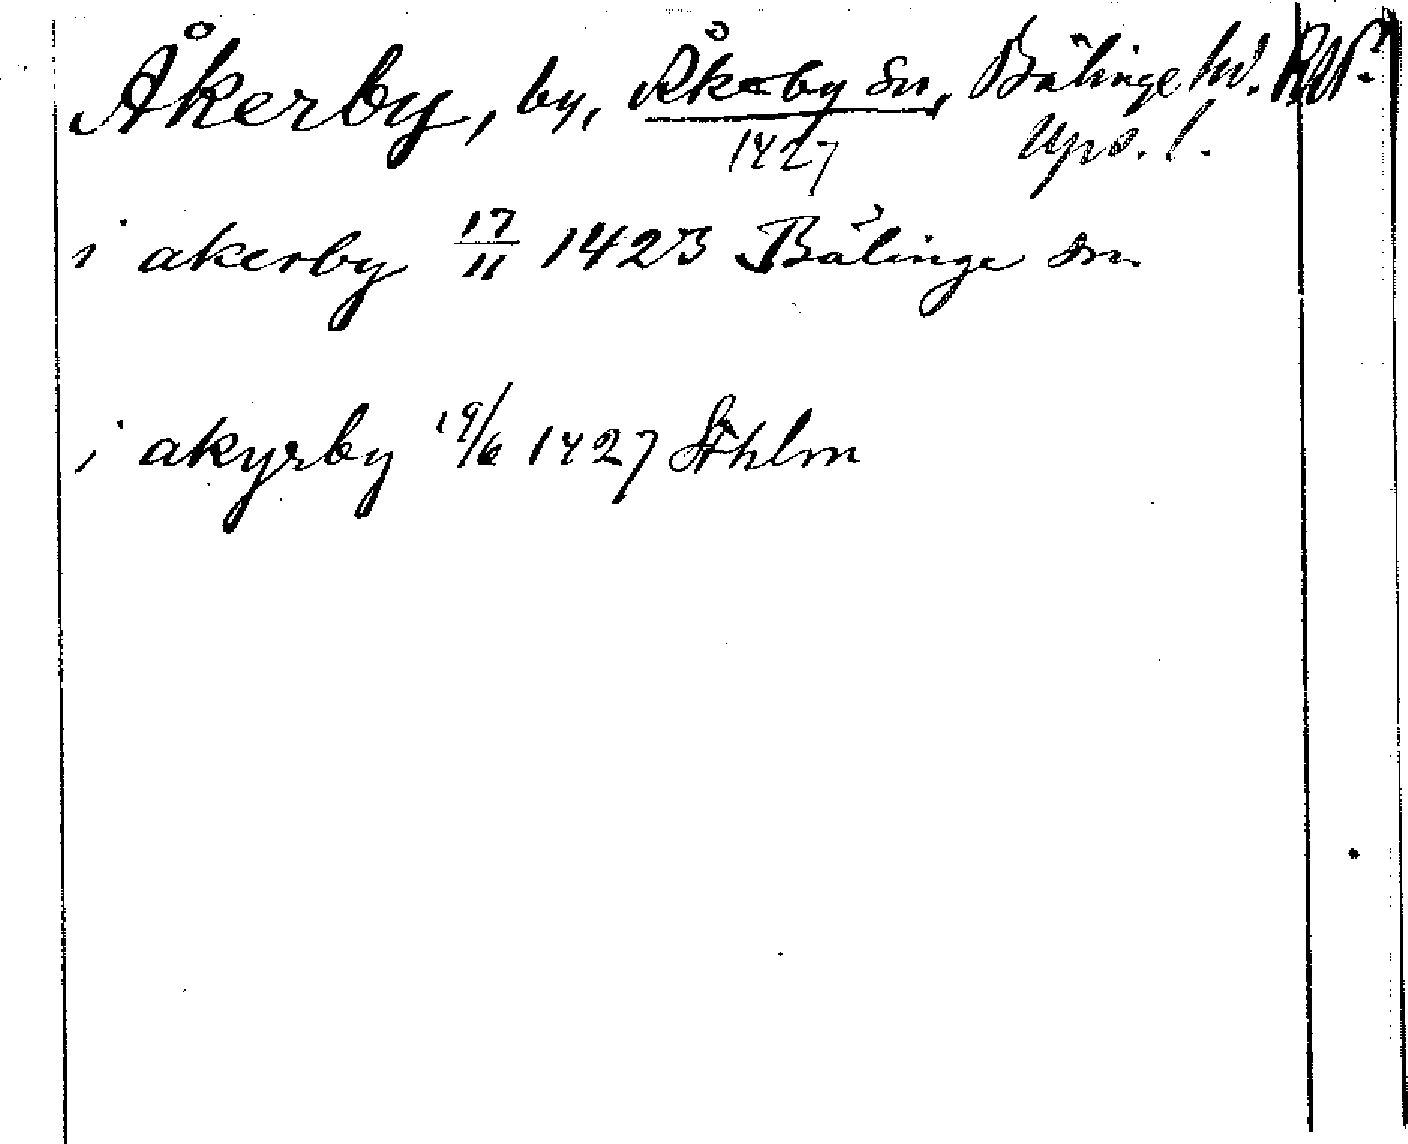 Åkerby, by, Åkerby sn, Bälinge hd.
1427 Ups. l.
i akerby 17/11 1423 Bälinge sn
i akyrby 19/6 1427 Sthlm